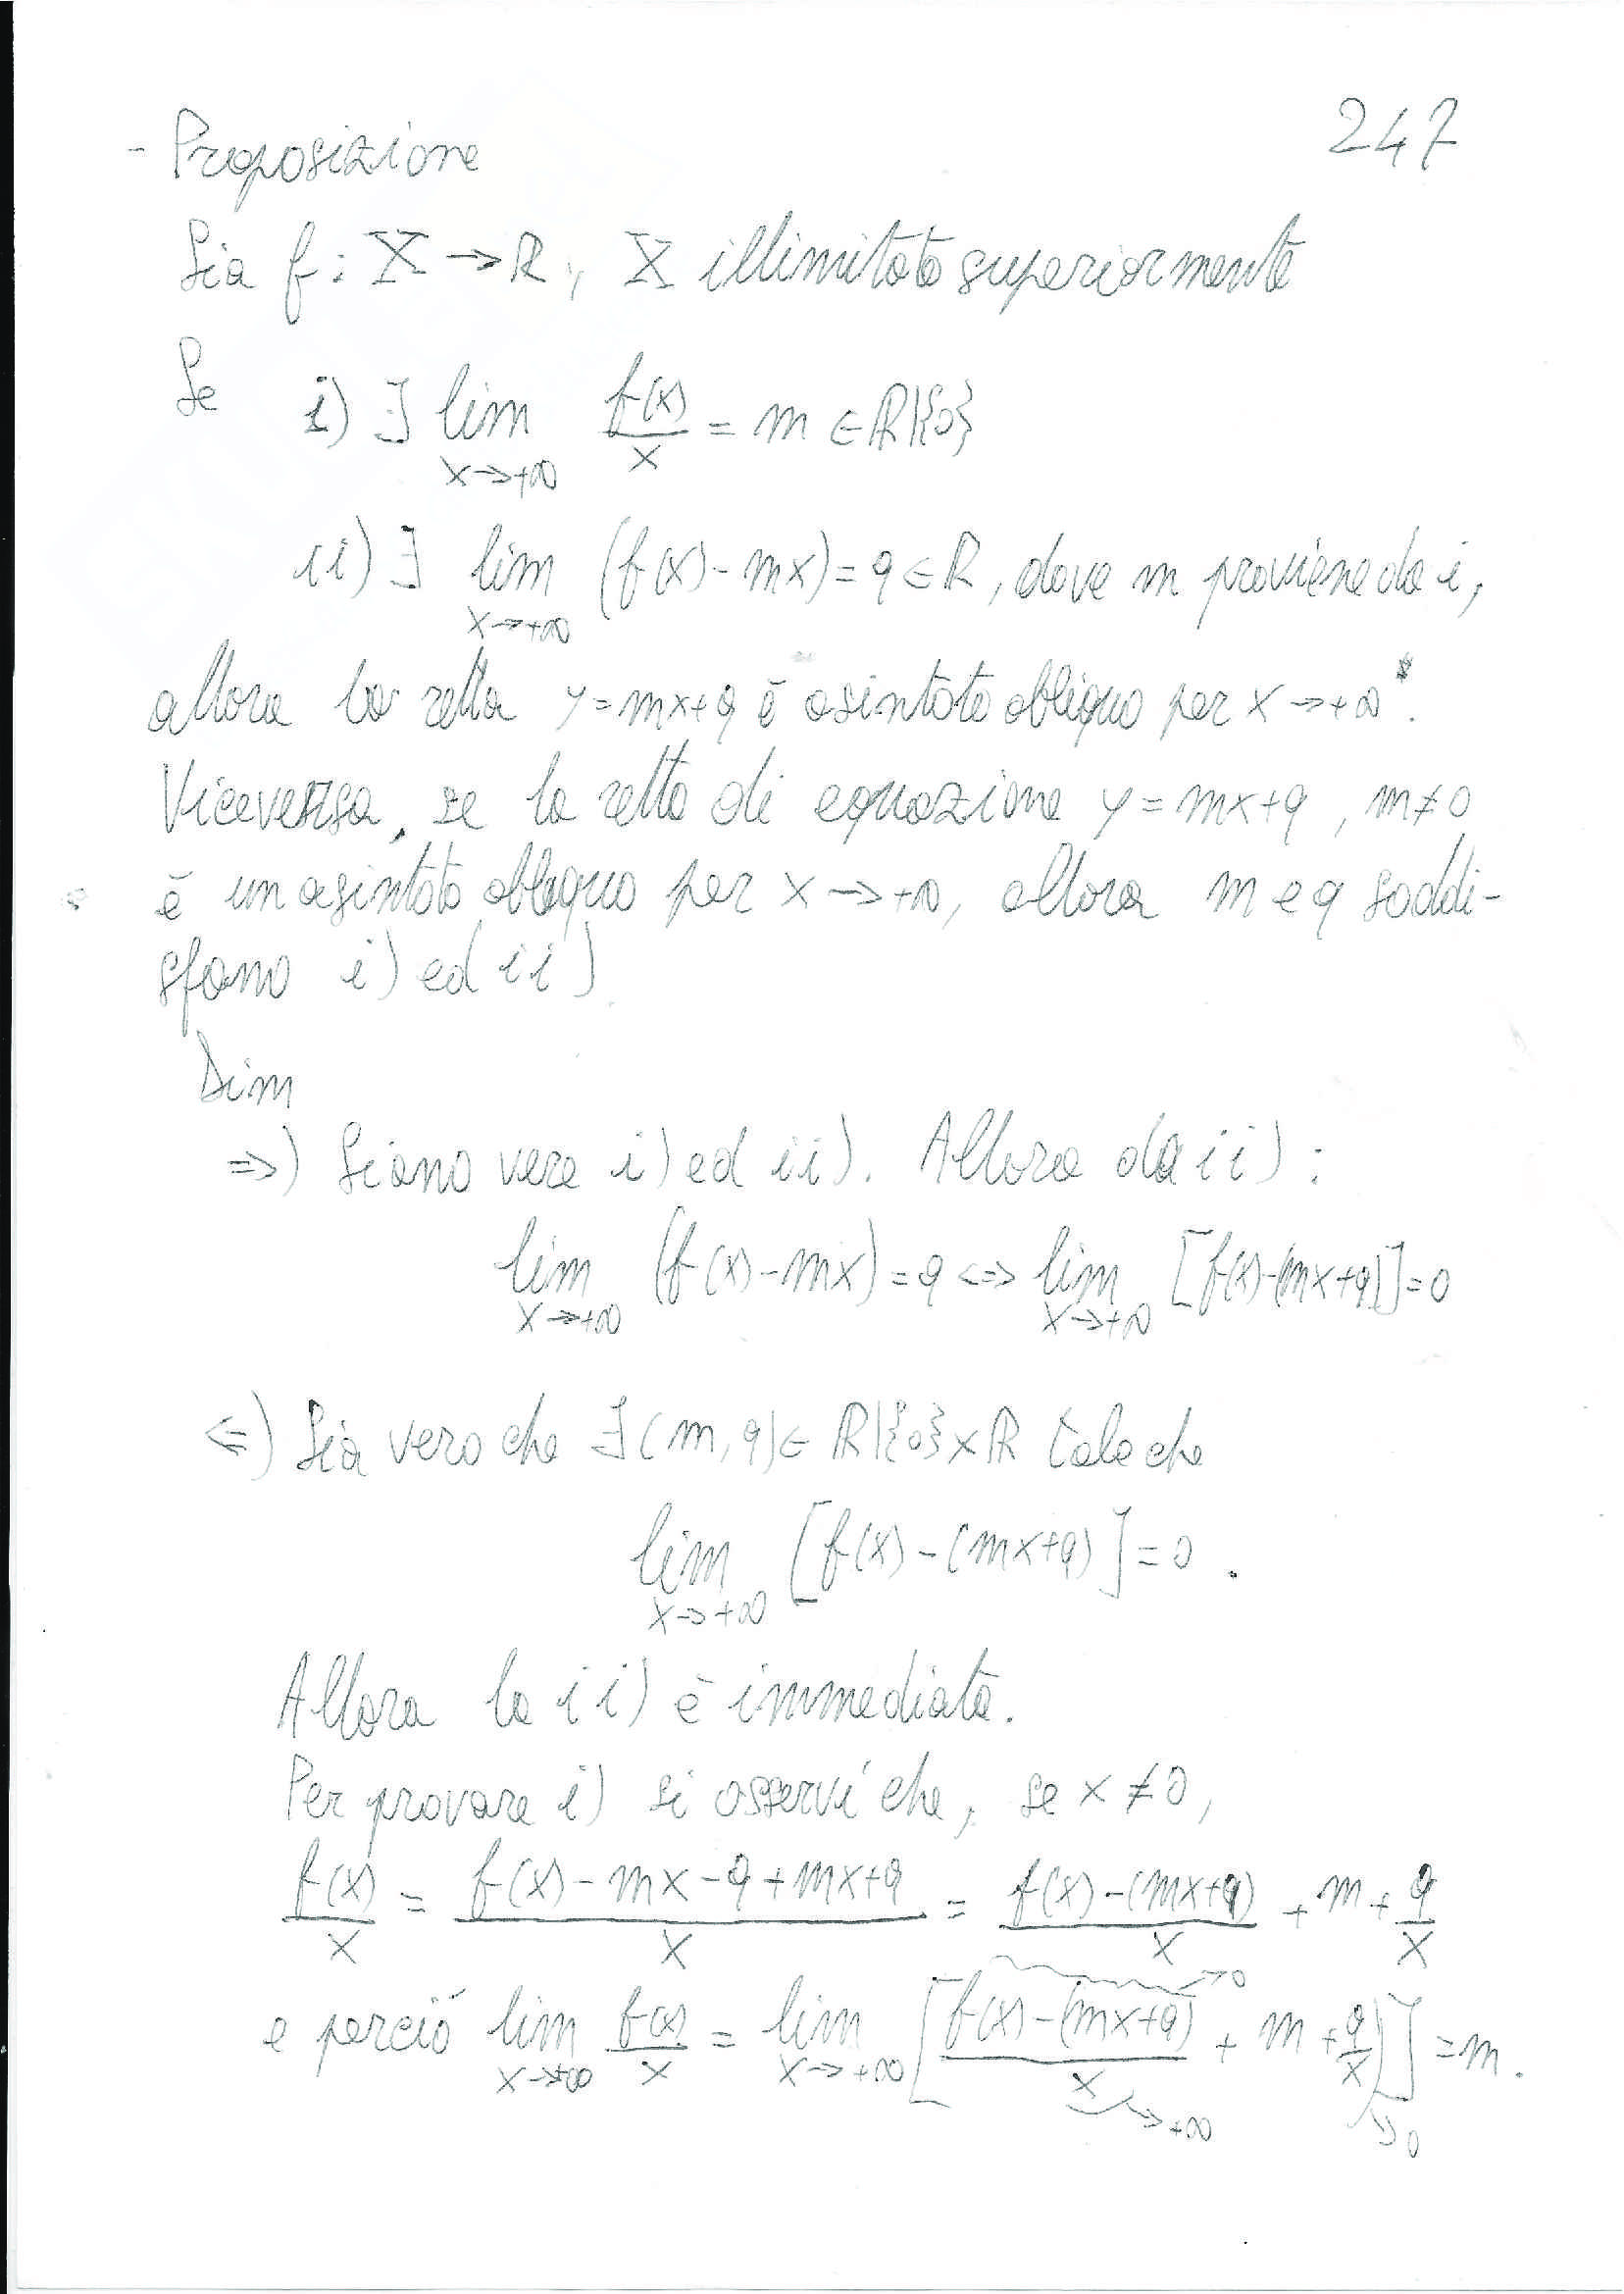 247
- Proposizione
Sia f: X → ℝ, X illimitato superiormente
Se i) ∃ lim x→+∞ f(x)/x = m ∈ ℝ\{0}
ii) ∃ lim x→+∞ (f(x) - mx) = q ∈ ℝ, dove m proviene da i,
allora la retta y = mx+q è asintoto obliquo per x → +∞.
Viceversa, se la retta di equazione y = mx+q, m ≠ 0
è un asintoto obliquo per x → +∞, allora m e q soddi-
sfano i) ed ii)
Dim
⇒) Siano vere i) ed ii). Allora da ii) :
lim x→+∞ (f(x) - mx) = q ⇔ lim x→+∞ [f(x) - (mx+q)] = 0
⇐) Sia vero che ∃ (m, q) ∈ ℝ\{0} × ℝ tale che
lim x→+∞ [f(x) - (mx+q)] = 0.
Allora la ii) è immediata.
Per provare i) si osservi che, se x ≠ 0,
f(x)/x = (f(x) - mx - q + mx + q)/x = (f(x) - (mx+q))/x + m + q/x
e perciò lim x→+∞ f(x)/x = lim x→+∞ [(f(x) - (mx+q))/x + m + q/x)] = m.
→0
→+∞
→0